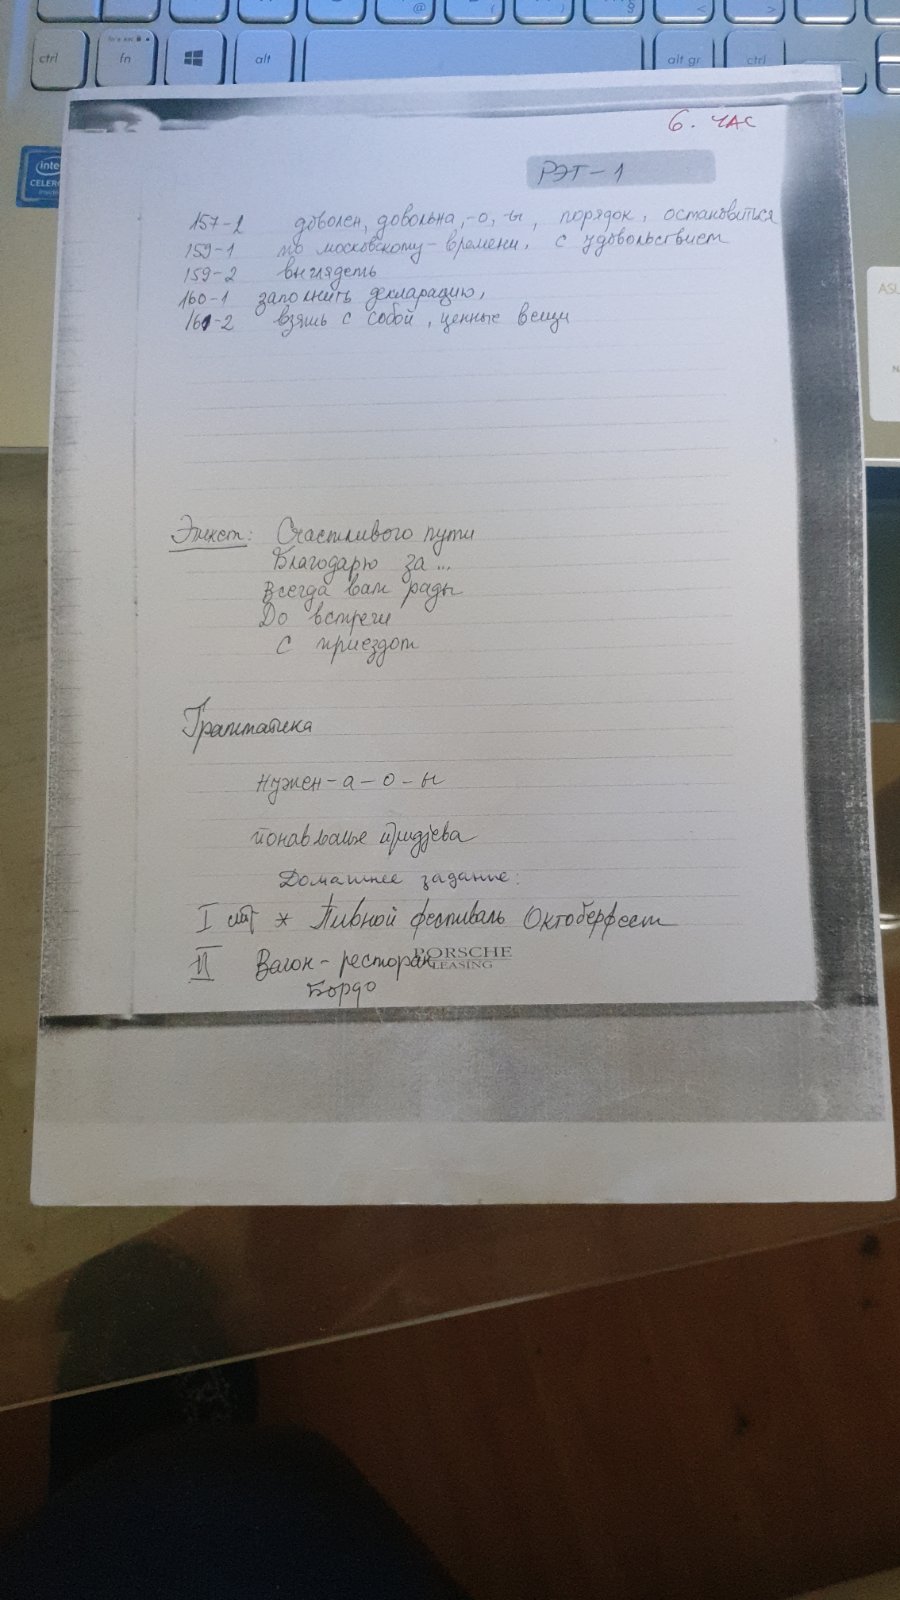 ctrl fn alt alt gr ctrl
intel
CELERON
ASUS
6. ЧАС
РЭТ-1
157-2 доволен, довольна, -о, -ы, порядок, остановиться
159-1 по московскому времени, с удовольствием
159-2 выглядеть
160-1 заполнить декларацию,
161-2 взять с собой, ценные вещи
Этикет: Счастливого пути
Благодарю за...
Всегда вам рады
До встречи
С приездом
Граматика
нужен - а - о - ы
понављање придјева
Домашнее задание:
I * Пивной фестиваль Октоберфест
II Вагон-ресторан
Бордо
PORSCHE
LEASING